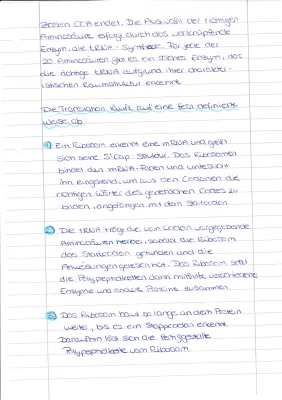 Basen CCA endet. Die Auswahl der richtigen
Aminosäure erfolgt durch das verknüpfende
Enzym, die tRNA-Synthese. Für jede der
20 Aminosäuren gibt es ein solches Enzym, das
die richtige tRNA aufgrund ihrer charakter-
istischen Raumstruktur erkennt.
Die Translation läuft auf eine fest definierte
Weise ab.
Ein Ribosom erkennt eine mRNA und greift
sich seine 5'Cap-Struktur. Das Ribosomen
bindet den mRNA-Faden und untersucht
ihn eingehend, um aus den Codonen die
richtigen Wörter des genetischen Codes zu
bilden, angefangen mit dem Startcodon
Die tRNA trägt die vom Codon vorgegebene
Aminosäuren herbei, sobald die Ribosom
das Startcodon gefunden und die
Anweisungen gelesen hat. Das Ribosom setzt
die Polypeptidketten dann mithilfe verschiedener
Enzyme und Proteine zusammen.
Das Ribosom baut so lange an dem Protein
weiter, bis es ein Stoppcodon erkennt.
Daraufhin löst sich die fertiggestellte
Polypeptidkette vom Ribosom